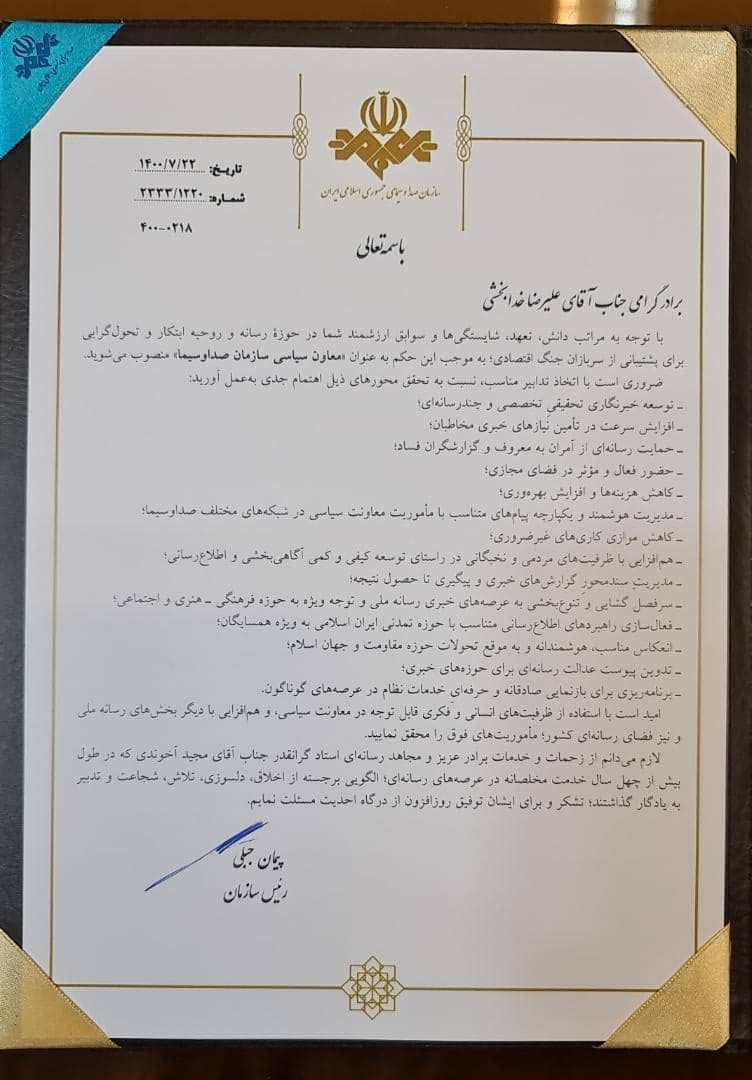 سازمان صدا و سیمای جمهوری اسلامی ایران
تاریخ: ۱۴۰۰/۷/۲۲
شماره: ۲۳۳۳/۱۲۲۰
۴۰۰-۰۲۱۸
باسمه تعالی
برادر گرامی جناب آقای علیرضا خدابخشی
با توجه به مراتب دانش، تعهد، شایستگی‌ها و سوابق ارزشمند شما در حوزهٔ رسانه و روحیه ابتکار و تحول‌گرایی
برای پشتیبانی از سربازان جنگ اقتصادی؛ به موجب این حکم به عنوان «معاون سیاسی سازمان صداوسیما» منصوب می‌شوید.
ضروری است با اتخاذ تدابیر مناسب، نسبت به تحقق محورهای ذیل اهتمام جدی به‌عمل آورید:
ـ توسعه خبرنگاری تحقیقیِ تخصصی و چندرسانه‌ای؛
ـ افزایش سرعت در تأمین نیازهای خبری مخاطبان؛
ـ حمایت رسانه‌ای از آمران به معروف و گزارشگران فساد؛
ـ حضور فعال و مؤثر در فضای مجازی؛
ـ کاهش هزینه‌ها و افزایش بهره‌وری؛
ـ مدیریت هوشمند و یکپارچه پیام‌های متناسب با مأموریت معاونت سیاسی در شبکه‌های مختلف صداوسیما؛
ـ کاهش موازی کاری‌های غیرضروری؛
ـ هم‌افزایی با ظرفیت‌های مردمی و نخبگانی در راستای توسعه کیفی و کمی آگاهی‌بخشی و اطلاع‌رسانی؛
ـ مدیریتِ سندمحورِ گزارش‌های خبری و پیگیری تا حصول نتیجه؛
ـ سرفصل گشایی و تنوع‌بخشی به عرصه‌های خبری رسانه ملی و توجه ویژه به حوزه فرهنگی ـ هنری و اجتماعی؛
ـ فعال‌سازی راهبردهای اطلاع‌رسانی متناسب با حوزه تمدنی ایران اسلامی به ویژه همسایگان؛
ـ انعکاس مناسب، هوشمندانه و به موقع تحولات حوزه مقاومت و جهان اسلام؛
ـ تدوین پیوست عدالت رسانه‌ای برای حوزه‌های خبری؛
ـ برنامه‌ریزی برای بازنمایی صادقانه و حرفه‌ای خدمات نظام در عرصه‌های گوناگون.
امید است با استفاده از ظرفیت‌های انسانی و فکری قابل توجه در معاونت سیاسی، و هم‌افزایی با دیگر بخش‌های رسانه ملی
و نیز فضای رسانه‌ای کشور؛ مأموریت‌های فوق را محقق نمایید.
لازم می‌دانم از زحمات و خدمات برادر عزیز و مجاهد رسانه‌ای استاد گرانقدر جناب آقای مجید آخوندی که در طول
بیش از چهل سال خدمت مخلصانه در عرصه‌های رسانه‌ای؛ الگویی برجسته از اخلاق، دلسوزی، تلاش، شجاعت و تدبیر
به یادگار گذاشتند؛ تشکر و برای ایشان توفیق روزافزون از درگاه احدیت مسئلت نمایم.
پیمان جبلّی
رئیس سازمان